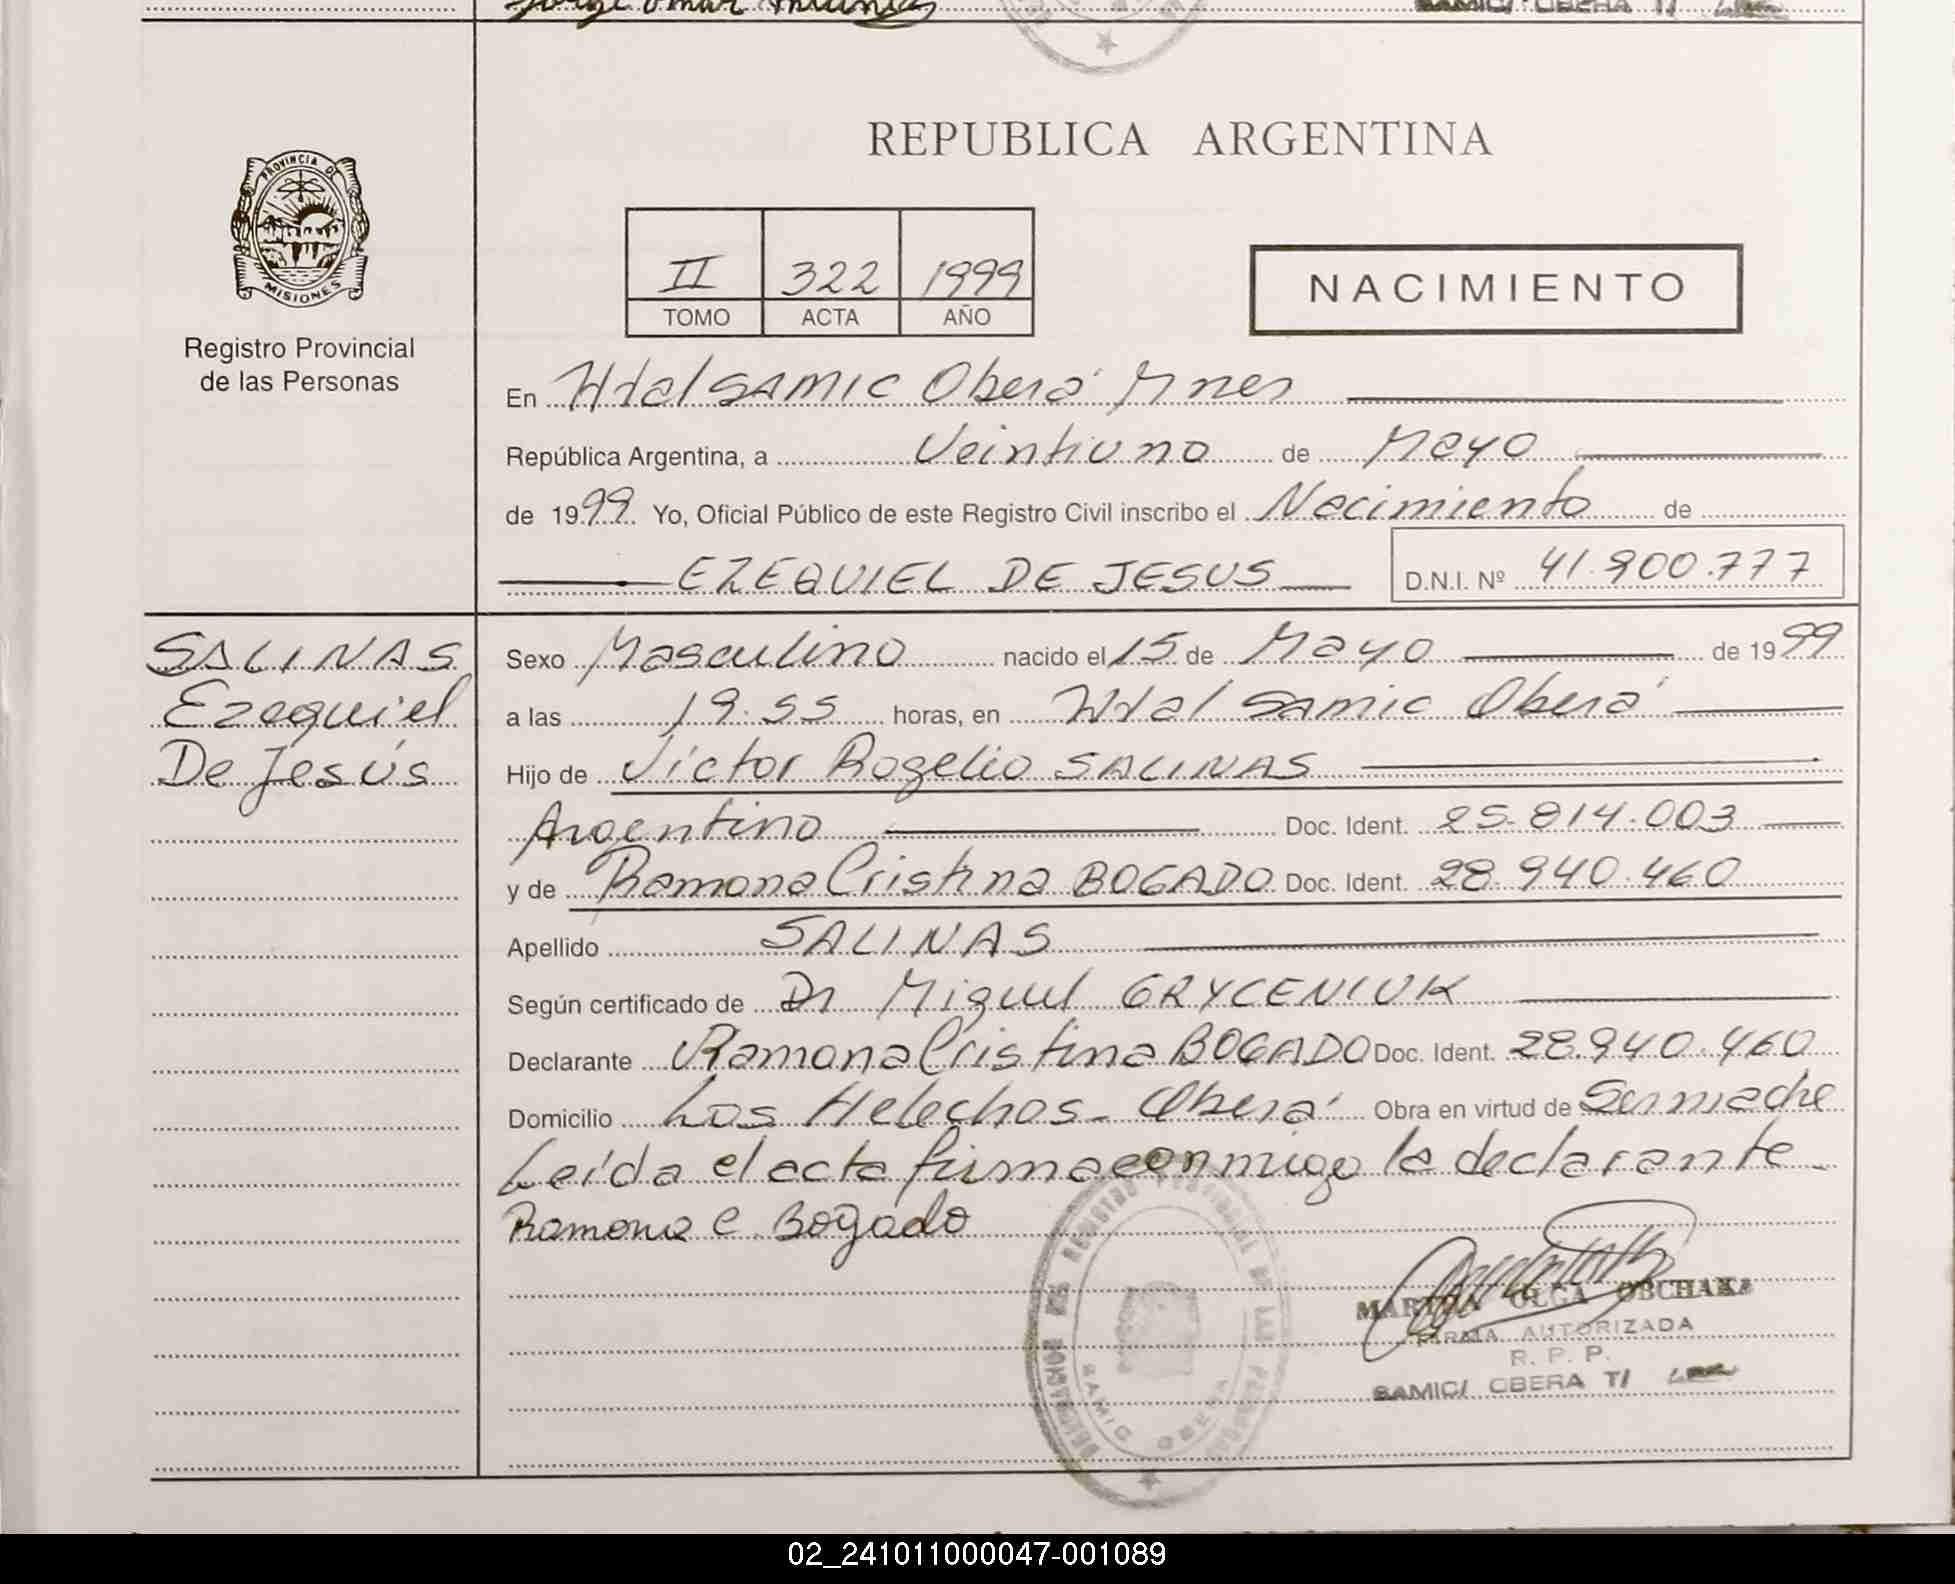 SAMIC/ OBERA T/
PROVINCIA DE
MISIONES
Registro Provincial
de las Personas
REPUBLICA ARGENTINA
II 322 1999
TOMO ACTA AÑO
NACIMIENTO
En Htal SAMIC Oberá Mnes
República Argentina, a Veintiuno de Mayo
de 1999 Yo, Oficial Público de este Registro Civil inscribo el Nacimiento de
EZEQUIEL DE JESUS D.N.I. Nº 41.900.777
SALINAS
Ezequiel
De Jesús
Sexo Masculino nacido el 15 de Mayo de 1999
a las 19.55 horas, en Htal Samic Oberá
Hijo de Víctor Rogelio SALINAS
Argentino Doc. Ident. 25.814.003
y de Ramona Cristina BOGADO Doc. Ident. 28.940.460
Apellido SALINAS
Según certificado de Dr Miguel GRYCENIUK
Declarante Ramona Cristina BOGADO Doc. Ident. 28.940.460
Domicilio Los Helechos - Oberá Obra en virtud de Ser madre
Leída el acta firma conmigo la declarante
Ramona C. Bogado
MARTHA OLGA OBCHAKA
FIRMA AUTORIZADA
R. P. P.
SAMIC/ OBERA T/
SAMIC OBERA
02_241011000047-001089